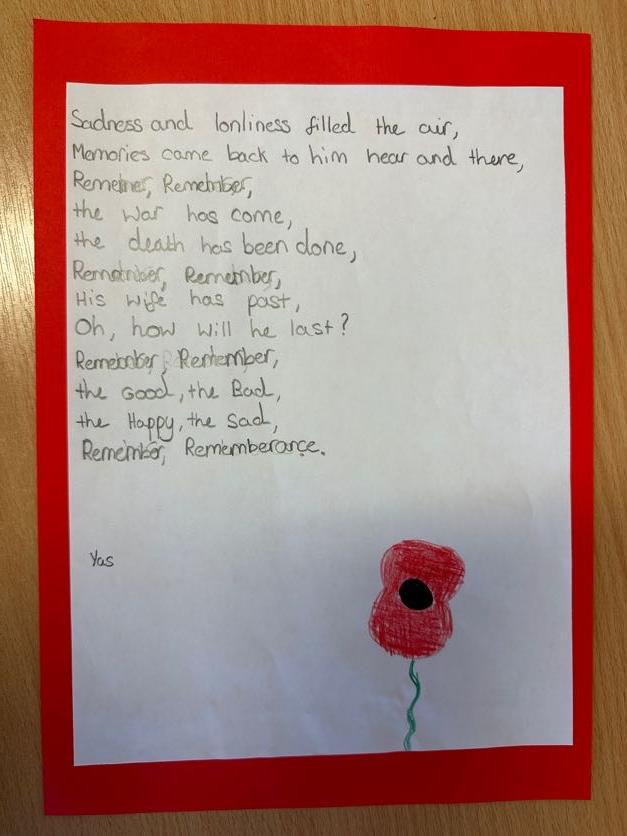 Sadness and lonliness filled the air,
Memories came back to him hear and there,
Rememer, Remember,
the war has come,
the death has been done,
Remember, Remember,
His wife has past,
Oh, how will he last?
Remember, Remember,
the Good, the Bad,
the Happy, the Sad,
Remember, Rememberance.
Yas